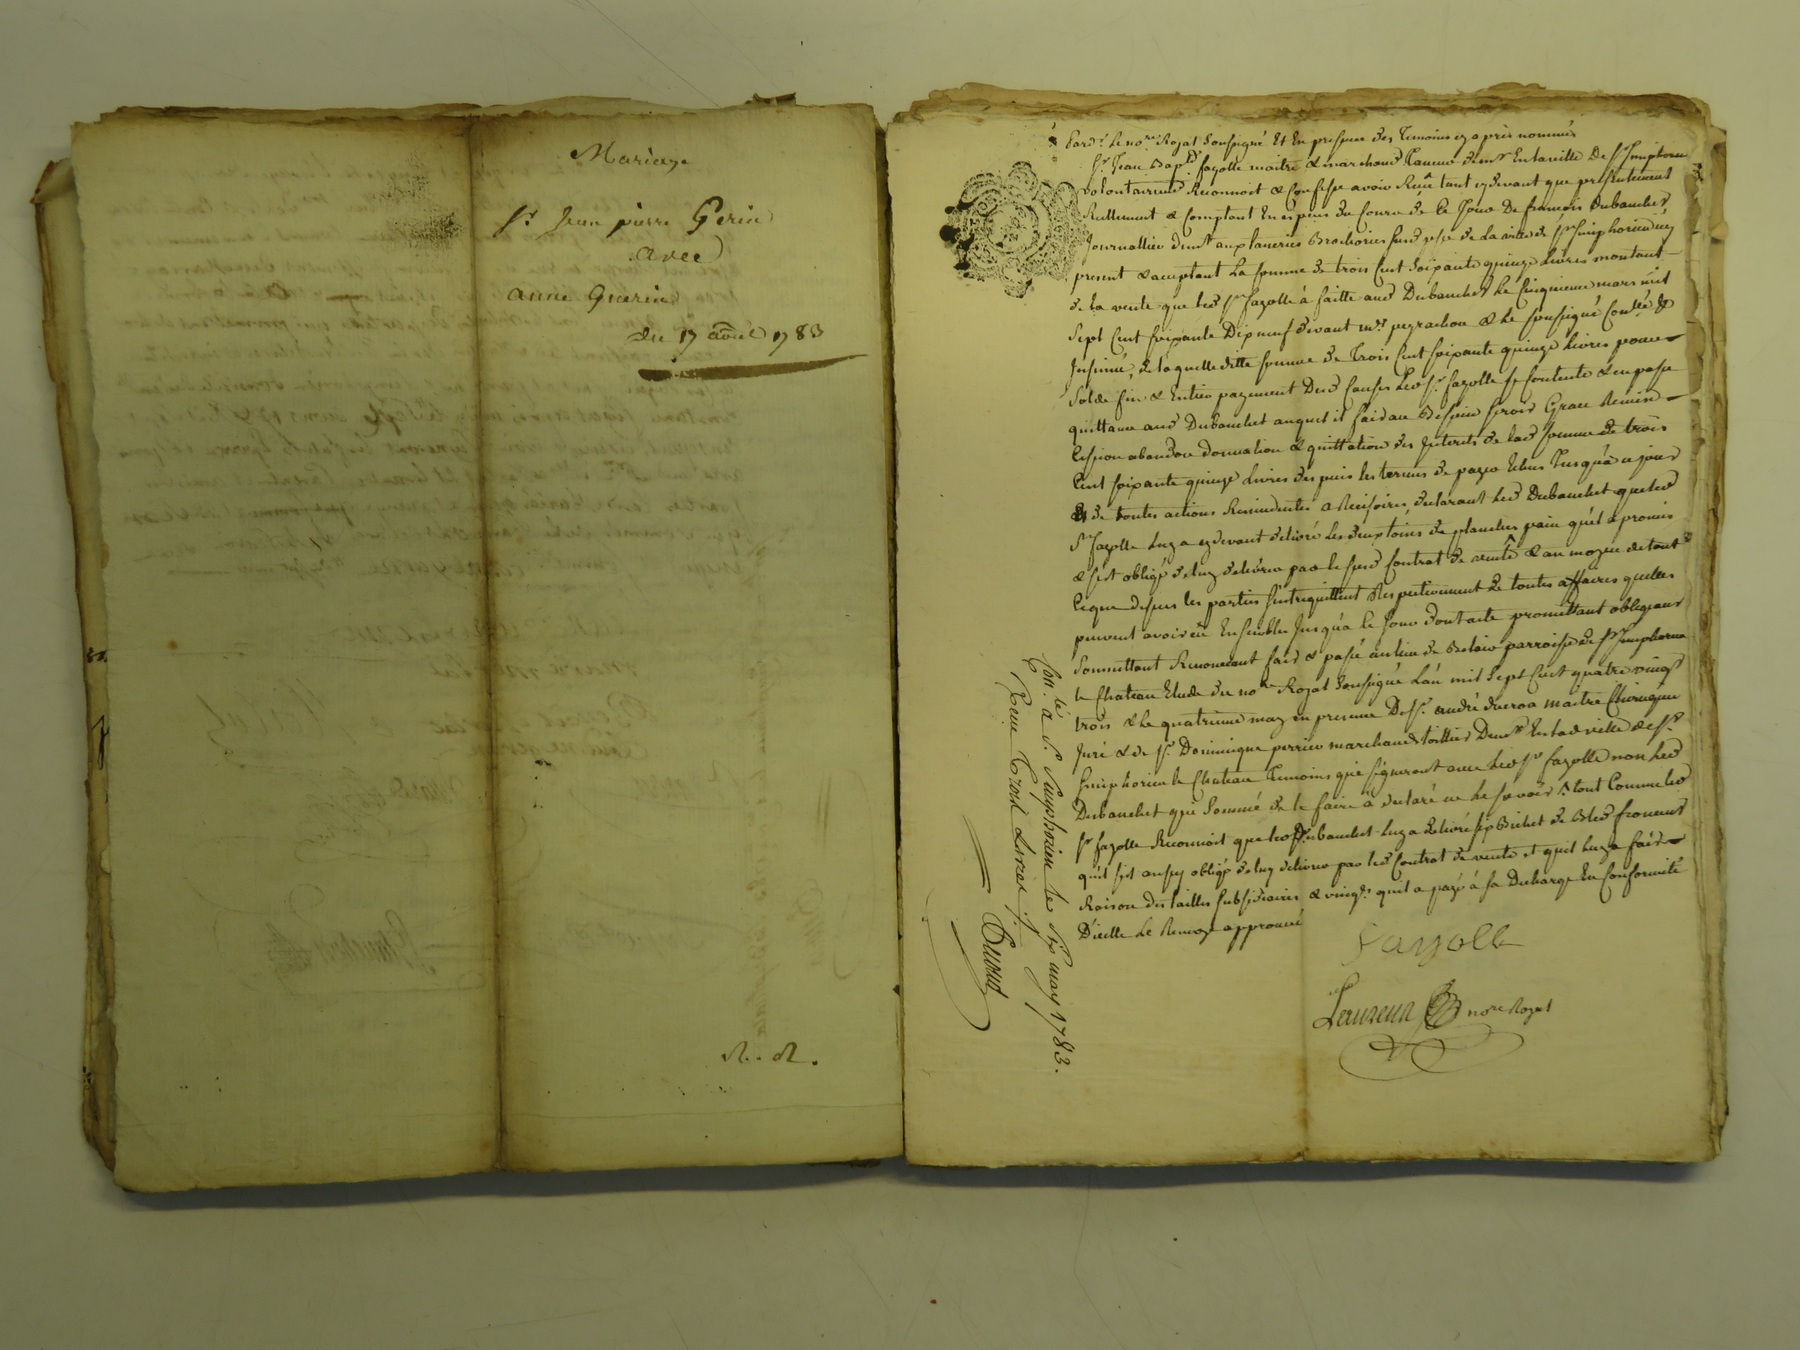 Mariage
Sr Jean pierre Gerin
avec
anne Guerin
du 17 avril 1783
R. R.
Pard.t Le no.re Royal soussigné Et En presence des Temoins cy après nommés
Sr Jean Bapt fayolle maitre & marchand Tanneur dem.t En laville De St Simphorien
volontairem.t Reconnoit & Confesse avoir Reçu tant cydevant que presentement
Reellement & Comptant En especes du Cours de Ce Jour De francois Dubanchet
Journallier dem.t aux tanneries parroisse de la ville de St Simphorien icy
present & acceptant La somme de trois Cent soixante quinze Livres montant
de la vente que led Sr fayolle à faitte aud Dubanchet le Cinquieme mars mil
sept Cent soixante Dix neuf devant me & Le soussigné Con.lée &
Insinué, De laquelle ditte somme de Trois Cent soixante quinze Livres pour
solde fin & Entier payement Des Causes Led Sr fayolle se Contente & en passe
quittance aud Dubanchet auquel il fait au Besoin Grace Remise
Cession abandon donnation & quittation des Interets de lad somme de trois
Cent soixante quinze Livres depuis les termes de payer Echus Jusqu'à ce jour
Et de toutes actions Rescindentes & Rescisoires, declarant Led Dubanchet que led
Sr fayolle Luy a cydevant delivré Les deux toises de planches pain qu'il a promis
& s'est obligé de luy delivrer par le susd Contrat de vente & au moyen de tout
Ceque dessus les parties s'entrequittent Respectivement De toutes affaires quelles
peuvent avoir eü Ensembles Jusqu'à Ce Jour dont acte promettant obligeant
soumettant Renonceant fait & passé au lieu de parroisse de St Simphorien
le Chateau Etude du no.re Royal soussigné L'an mil sept Cent quatre vingt
trois & le quatrieme may en presence De Sr andré maitre Chirurgien
Juré & de Sr Dominique perrier marchand toillier Dem.t En lad ville de St
Simphorien le Chateau Temoins qui signeront avec Led Sr fayolle non Led
Dubanchet qui sommé de le faire à declaré ne le savoir & tout Comme led
Sr fayolle Reconnoit que led Dubanchet Luy a delivré six Bichet de Bled froment
qu'il s'est aussy obligé de luy delivrer par led Contrat de vente et quil luy a fait
Raison des tailles subsidiaires & vingt.e qu'il a payé à sa Decharge En Conformité
D'icelle Le Renvoy approuvé
fayolle
Laureux no.re Royal
Con.lé a S. Simphorien le Six may 1783.
Reçu Trois Livres